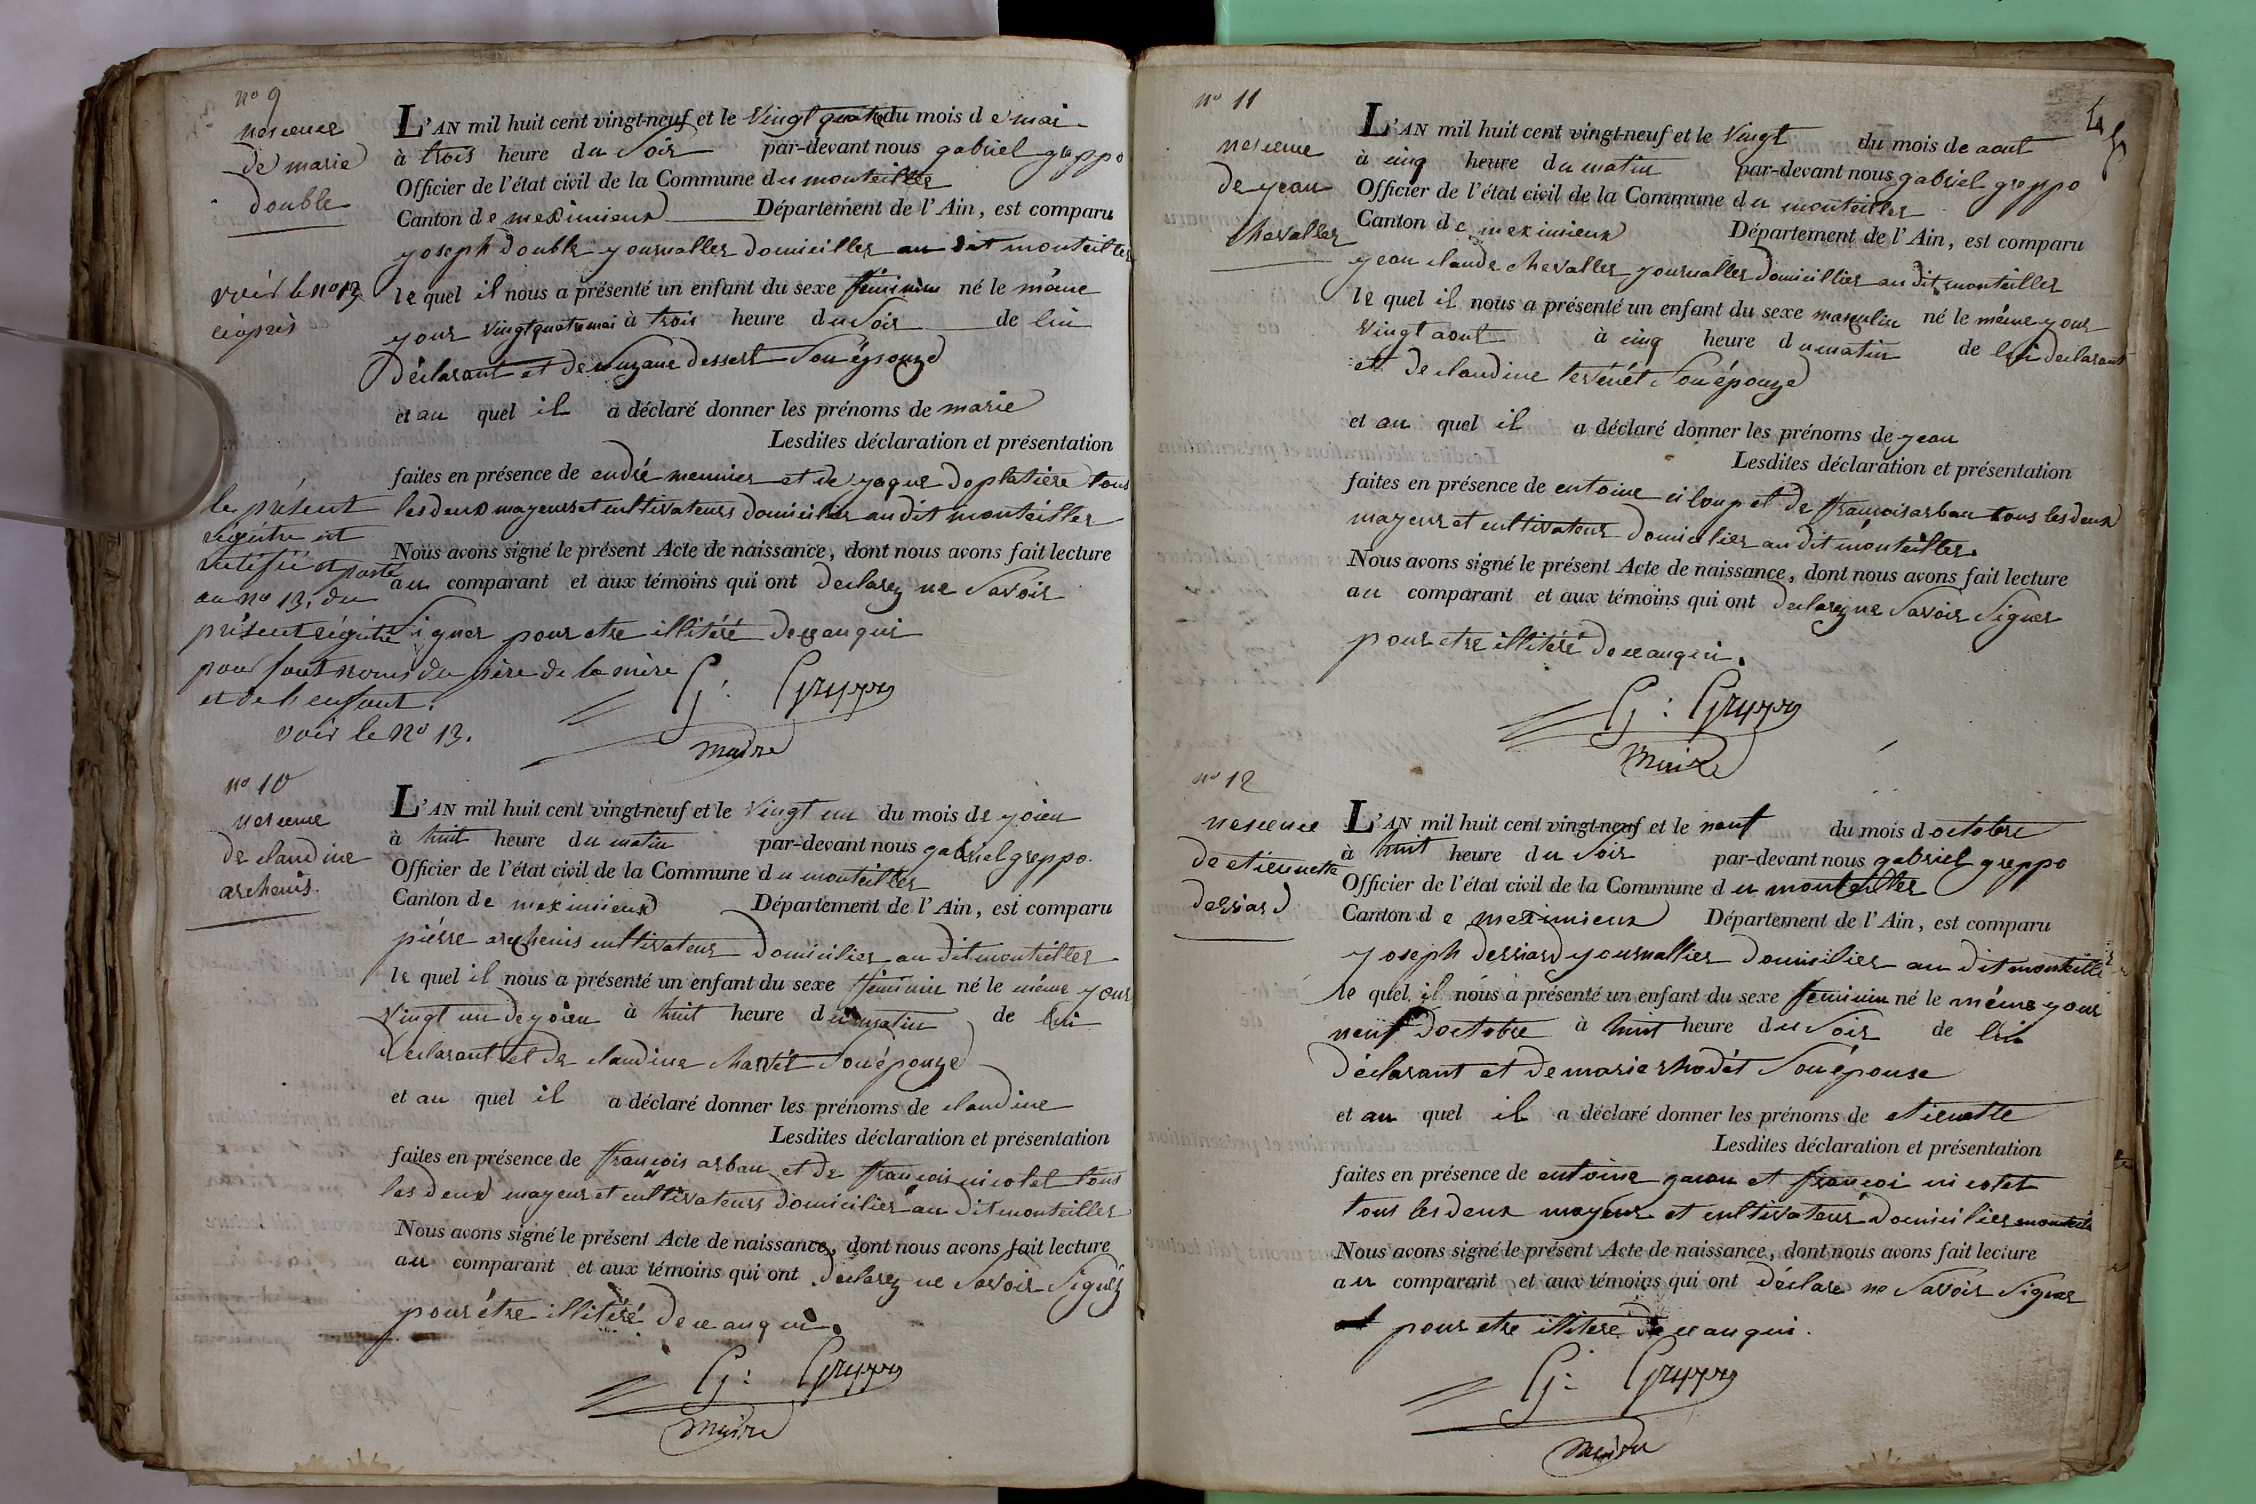 no 9
nescence
de marie
double
voir le no 13
ci après
L'AN mil huit cent vingt-neuf et le vingt quatre du mois de mai
à trois heure du soir par-devant nous gabriel greppo
Officier de l'état civil de la Commune du monteiller
Canton de meximieux Département de l'Ain, est comparu
yoseph double yournallier domicillier au dit monteiller
le quel il nous a présenté un enfant du sexe féminin né le même
your vingt quatre mai à trois heure du soir de lui
déclarant et de suzane dessert son épouze
et au quel il a déclaré donner les prénoms de marie
Lesdites déclaration et présentation
faites en présence de endré meunier et de yaque doplatiere tous
les deux mayeur et cultivateurs domicilier au dit monteiller
Nous avons signé le présent Acte de naissance, dont nous avons fait lecture
au comparant et aux témoins qui ont declarez ne savoir
signer pour etre illitéré de ce anquis
le présent
régistre est
rectifié et porté
au no 13. du
présent régistre
pour faux noms du père de la mère
et de l'enfant.
voir le No 13.
G: Greppo
maire
no 10
nescence
de claudine
archenis
L'AN mil huit cent vingt-neuf et le vingt un du mois de yoien
à huit heure du matin par-devant nous gabriel greppo
Officier de l'état civil de la Commune du monteiller
Canton de meximieux Département de l'Ain, est comparu
piérre archenis cultivateur domicilier au dit monteiller
le quel il nous a présenté un enfant du sexe féminin né le même your
vingt un de yoien à huit heure du matin de lui
declarant et de claudine charvét son épouze
et au quel il a déclaré donner les prénoms de claudine
Lesdites déclaration et présentation
faites en présence de françois arban et de françois nicolet tous
les deux mayeur et cultivateurs domicilier au dit monteiller
Nous avons signé le présent Acte de naissance, dont nous avons fait lecture
au comparant et aux témoins qui ont declarez ne savoir signér
pour être illitéré de ce anquis.
G: Greppo
maire
no 11
nescence
de yean
chevallier
L'AN mil huit cent vingt-neuf et le vingt du mois de aout
à cinq heure du matin par-devant nous gabriel greppo
Officier de l'état civil de la Commune du monteiller
Canton de meximieux Département de l'Ain, est comparu
yean claude chevallier yournallier domicillier au dit monteiller
le quel il nous a présenté un enfant du sexe masculin né le même your
vingt aout à cinq heure du matin de lui declarant
et de claudine tervenét son épouze
et au quel il a déclaré donner les prénoms de yean
Lesdites déclaration et présentation
faites en présence de entoine ciloup et de francois arban tous les deux
mayeur et cultivateur domicilier au dit monteiller.
Nous avons signé le présent Acte de naissance, dont nous avons fait lecture
au comparant et aux témoins qui ont declarez ne savoir signer
pour etre illitéré de ce anquis.
G: Greppo
maire
no 12
nescence
de etiennette
derriard
L'AN mil huit cent vingt-neuf et le neuf du mois d octobre
à huit heure du soir par-devant nous gabriel greppo
Officier de l'état civil de la Commune du monteiller
Canton de meximieux Département de l'Ain, est comparu
yoseph derriard yournallier domicilier au dit monteiller
le quel il nous a présenté un enfant du sexe féminin né le même your
neuf doctobre à huit heure du soir de lui
déclarant et de marie rhodét son épouse
et au quel il a déclaré donner les prénoms de etienette
Lesdites déclaration et présentation
faites en présence de entoine et françoi nicolet
tous les deux mayeur et cultivateur domicilier
Nous avons signé le présent Acte de naissance, dont nous avons fait lecture
au comparant et aux témoins qui ont déclare ne savoir signer
pour etre illitere de ce anqui.
G: Greppo
maire